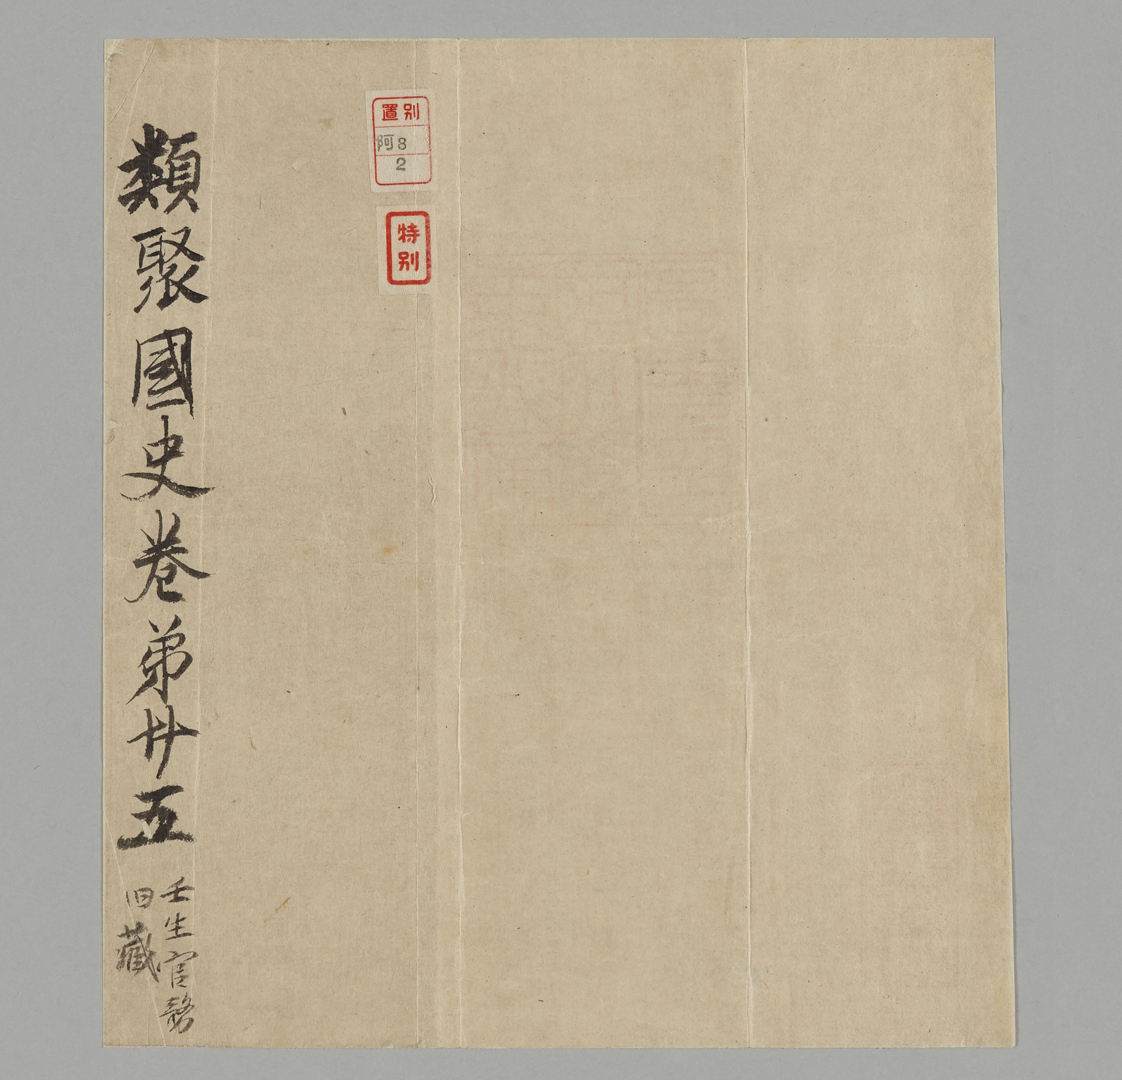 別置
阿8
2
特別
類聚國史卷弟廿五
壬生官務
旧藏